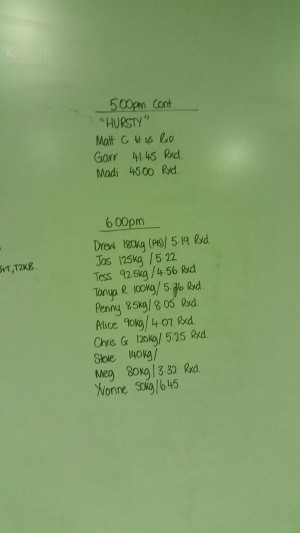 5:00pm Cont.
"HURSTY"
Matt C 41.45 RxD
Garr 41.45 Rxd
Madi 45.00 Rxd.
6:00pm
Drew 180kg (PB)/ 5.19 Rxd.
Jas 125kg / 5.22
Tess 92.5kg / 4.56 Rxd
Tanya R 100kg / 5.36 Rxd.
Penny 85kg / 8.05 Rxd.
Alice 90kg / 4.07 Rxd.
Chris G 120kg / 5.25 Rxd.
Steve 140kg/
Meg 80kg / 3.32 Rxd.
Yvonne 50kg / 6.45
T2KB